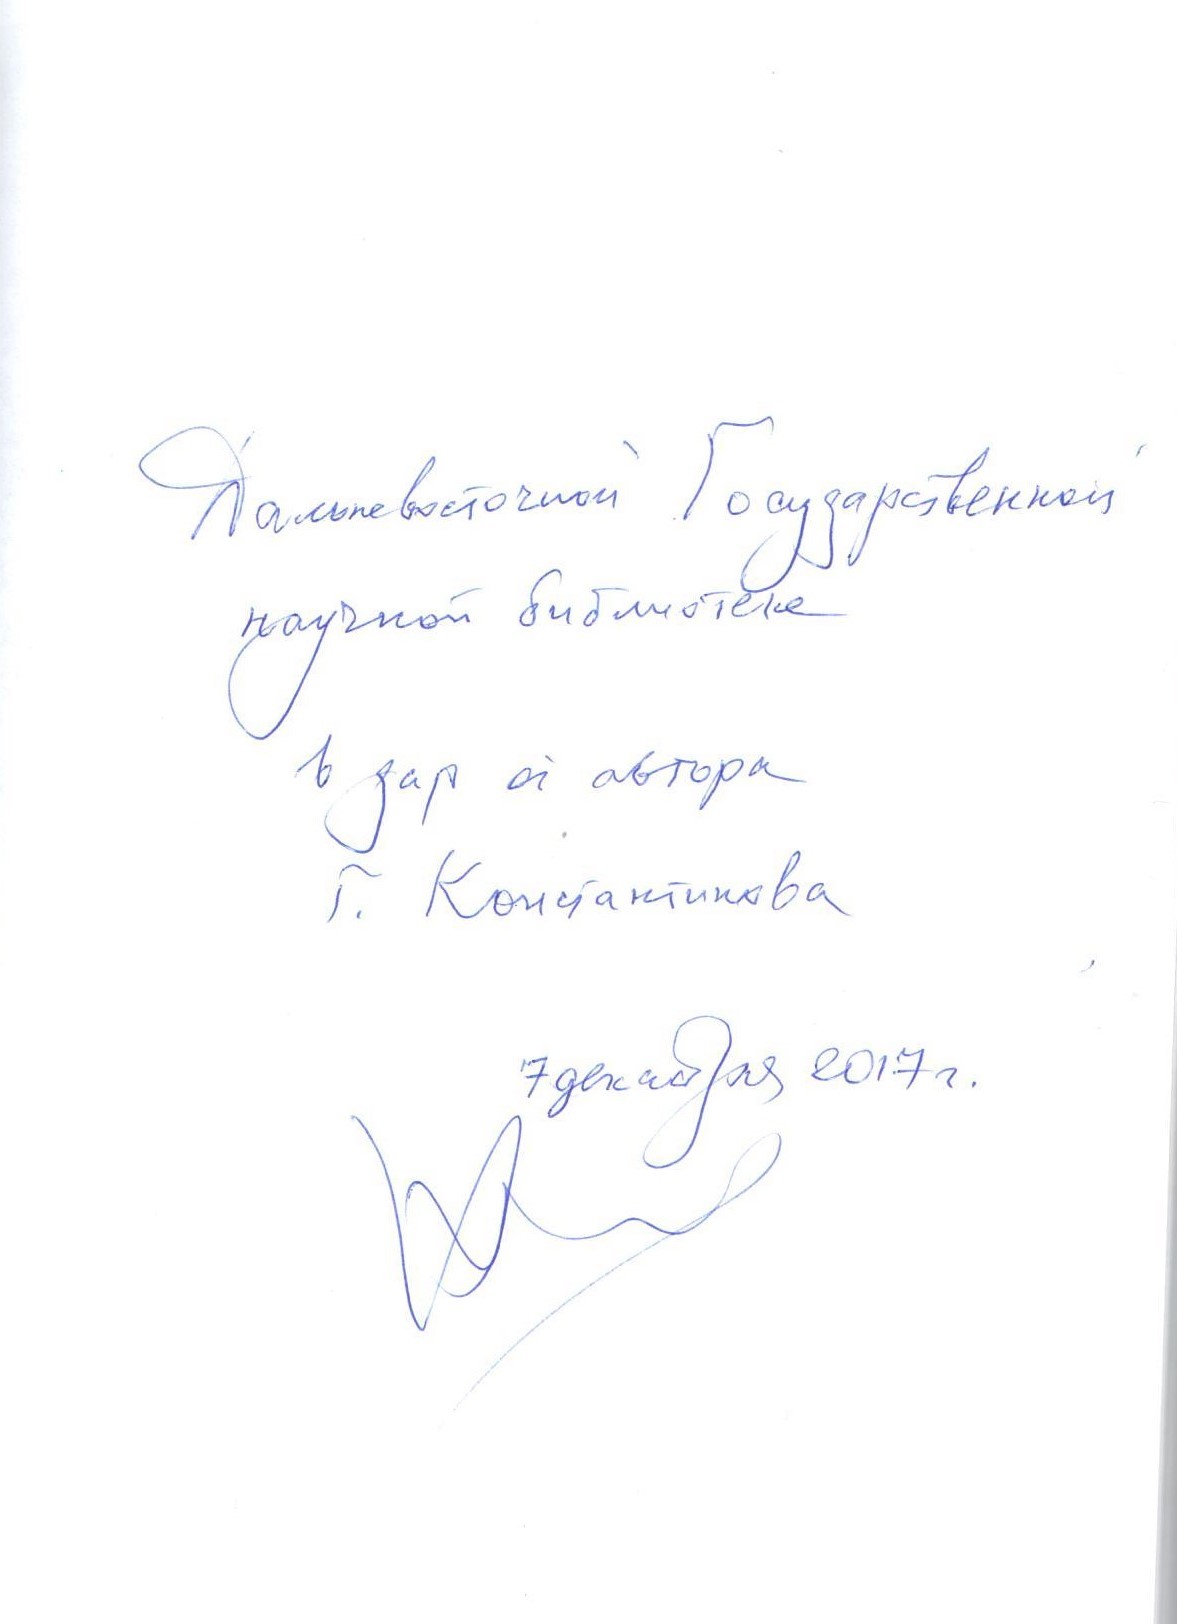 Дальневосточной Государственной
научной библиотеке
в дар от автора
Г. Константинова
7 декабря 2017 г.